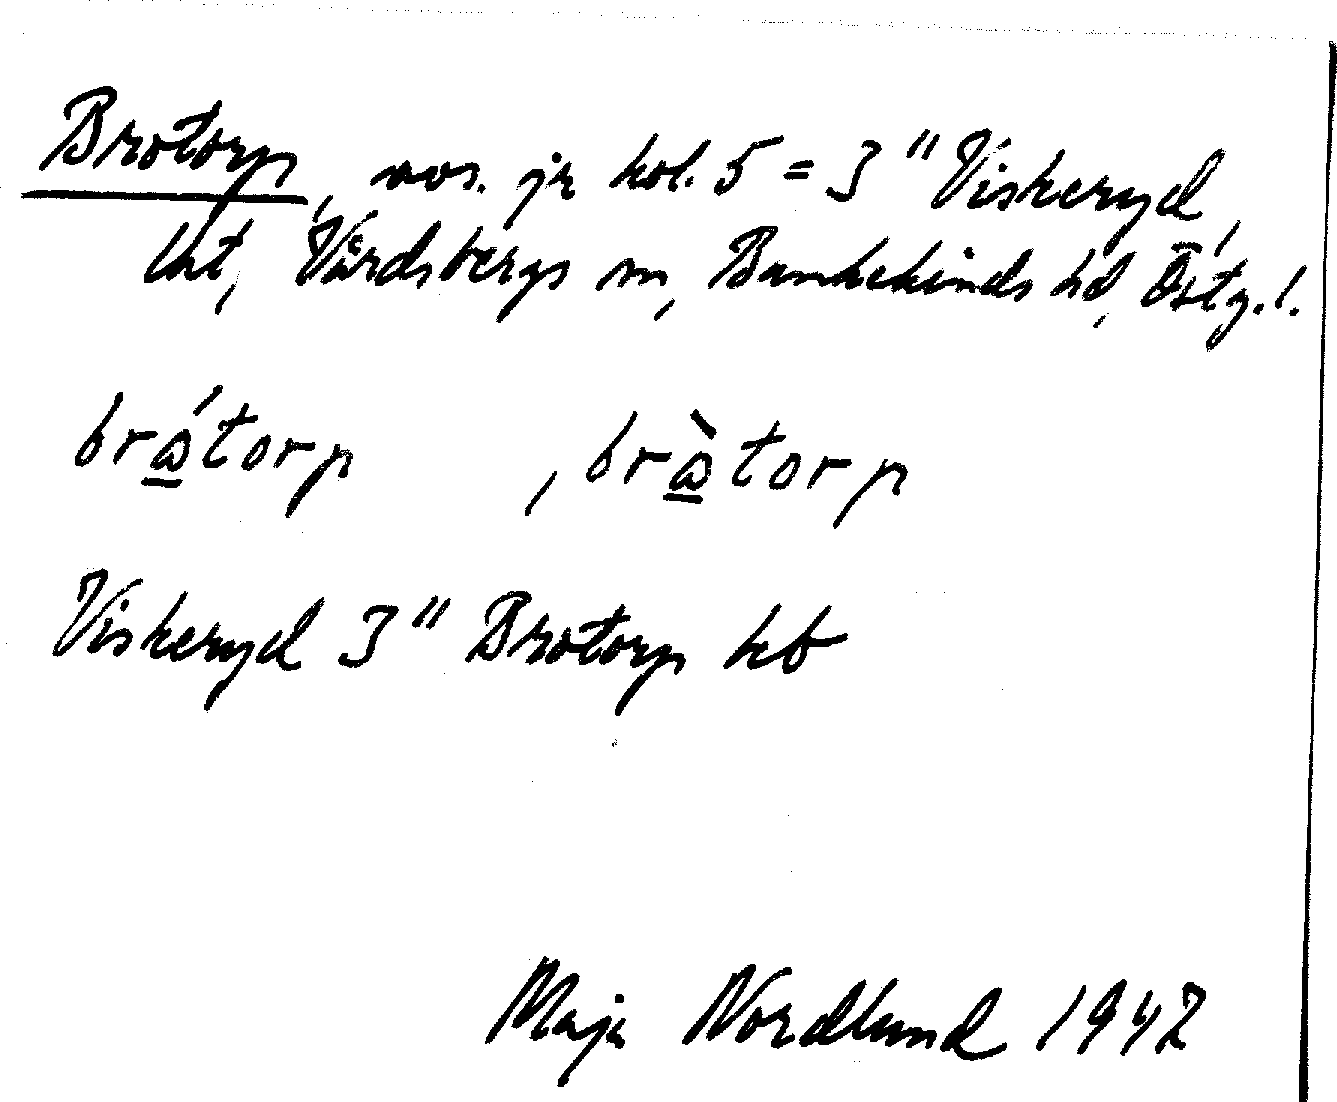 Brotorp, avs. jr kol. 5 = 3" Viskeryd,
Uht, Vårdsbergs sn, Bankekinds hd, Östg. l.
brá̲torp , brà̲torp
Viskeryd 3" Brotorp kb
Maja Nordlund 1947